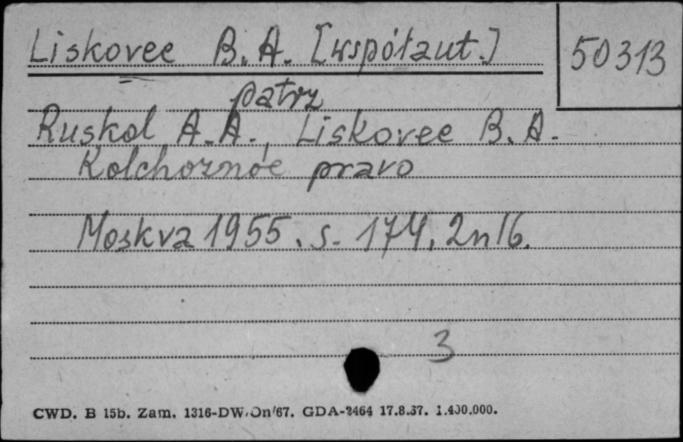 Liskovec B. A. [współaut.]
50313
patrz
Ruskol A. A., Liskovec B. A.
Kolchoznoe pravo
Moskva 1955. s. 174, 2nlb.
3
CWD. B 15b. Zam. 1316-DW/Dn/67. GDA-2464 17.8.67. 1.400.000.